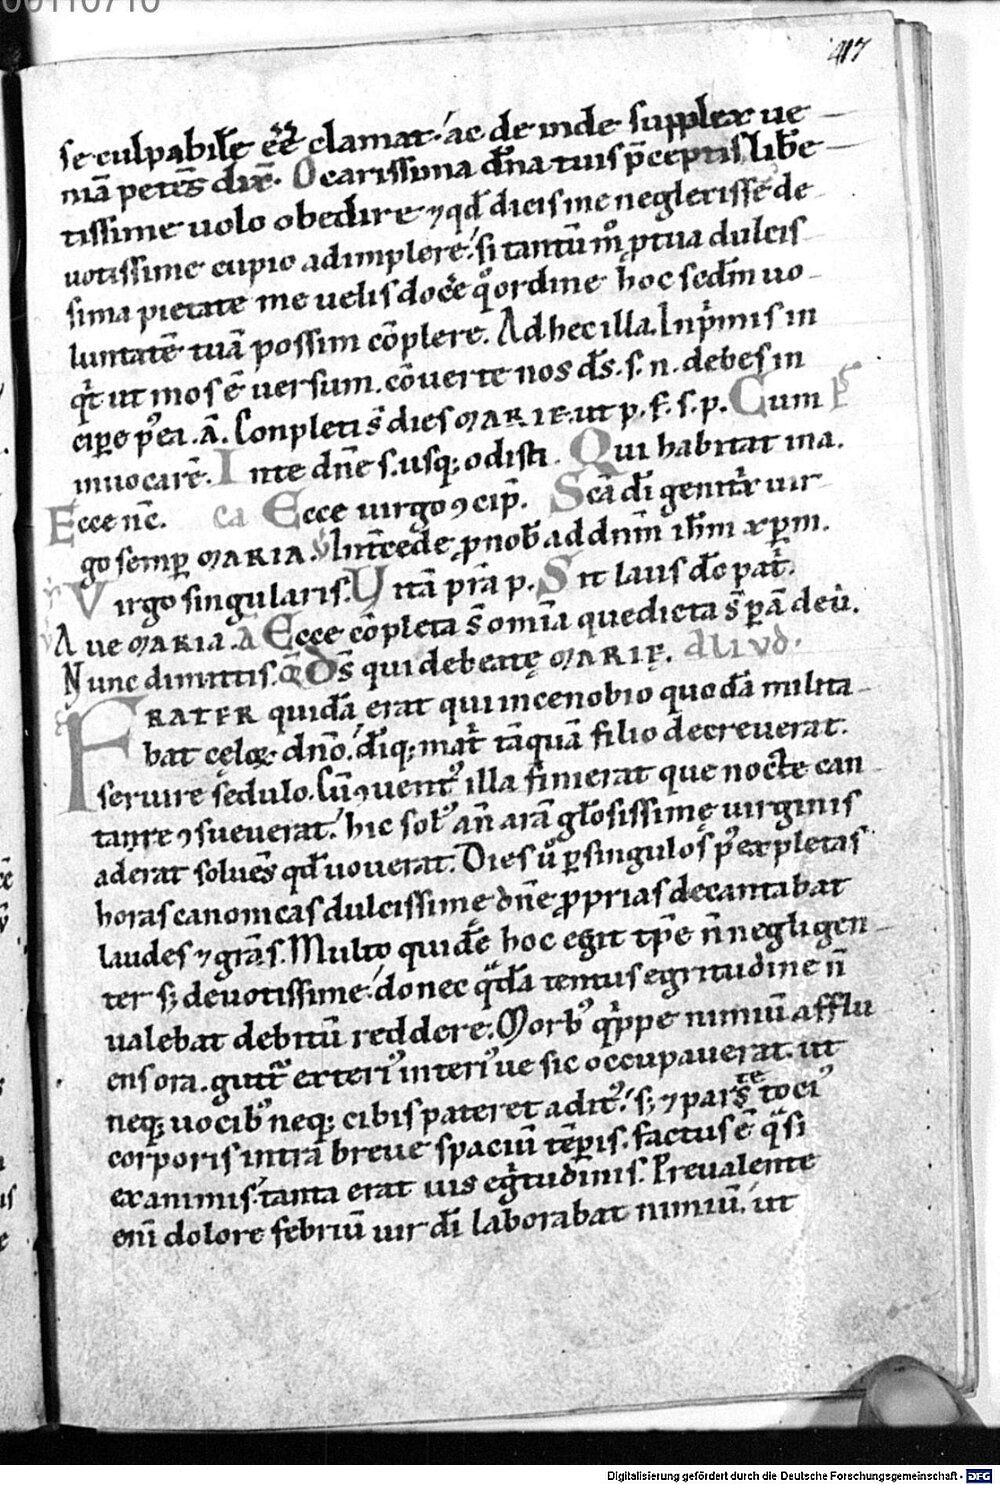 00110710
417
se culpabilē ēē clamat. ac de inde supplex ue
niā petēs dix̄. O carissima dn̄a tuis p̄ceptis libe
tissime uolo obedire ⁊ qd̄ dicis me neglexisse de
uotissime cupio adimplere. si tantū m̊ ꝑ tua dulcis
sima pietate me uelis docē qͦ ordine hoc sedm̄ uo
luntatē tuā possim cōplere. Ad hec illa. Inp̄mis in
qͥt ut mos ē uersum. cōuerte nos ds̄. s. n. debes in
cipe p̄ ea. ā. Conpleti s̄ dies MARIE. ut p. f. s. p. Cum ps̄
inuocarē. In te dn̄e s. usq; odisti. Qui habitat in a.
Ecce nc̄. ca Ecce uirgo ꝯcip̄. Scā dī genitͥx uir
go semꝑ MARIA. v̄ Int̄cede ꝓ nob̄ ad dnm̄ ihm̄ xp̄m.
Virgo singularis. Vitā p̄sta p. Sit laus dō pat̄.
Aue MARIA. ā Ecce cōpleta s̄ omīa que dicta s̄ ꝑ ā deū.
Nunc dimittis. Ds̄ qui de beatę MARIĘ. aliud.
FRATER quidā erat qui in cenobio quodā milita
bat cęloꝝ dnō. dīq; mat̄ tāquā filio decreuerat.
seruire sedulo. Cū ꝯuentꝰ illa finierat que nocte can
tare ꝯsueuerat. hic solꝰ an̄ arā glōsissimę uirginis
aderat soluēs qd̄ uouerat. Dies ū ꝑ singulos p̄ expletas
horas canonicas dulcissime dn̄e ꝓprias decantabat
laudes ⁊ grās. Multo quidē hoc egit tp̄e n̄ negligen
ter s; deuotissime. donec qͣdā tentus egritudine n̄
ualebat debitū reddere. Morbꝰ qͥppe nimiū afflu
ens ora. guttͬ exteriꝰ interiꝰue sic occupauerat. ut
neq; uocibꝰ neq; cibis pateret aditꝰ. s; ⁊ pars te tociꝰ
corporis intrā breue spaciū tēp̄is. factus ē qͣsi
exanimis. tanta erat uis egͥtudinis. Preualente
enī dolore febriū uir dī laborabat nimiū. ut
Digitalisierung gefördert durch die Deutsche Forschungsgemeinschaft - DFG